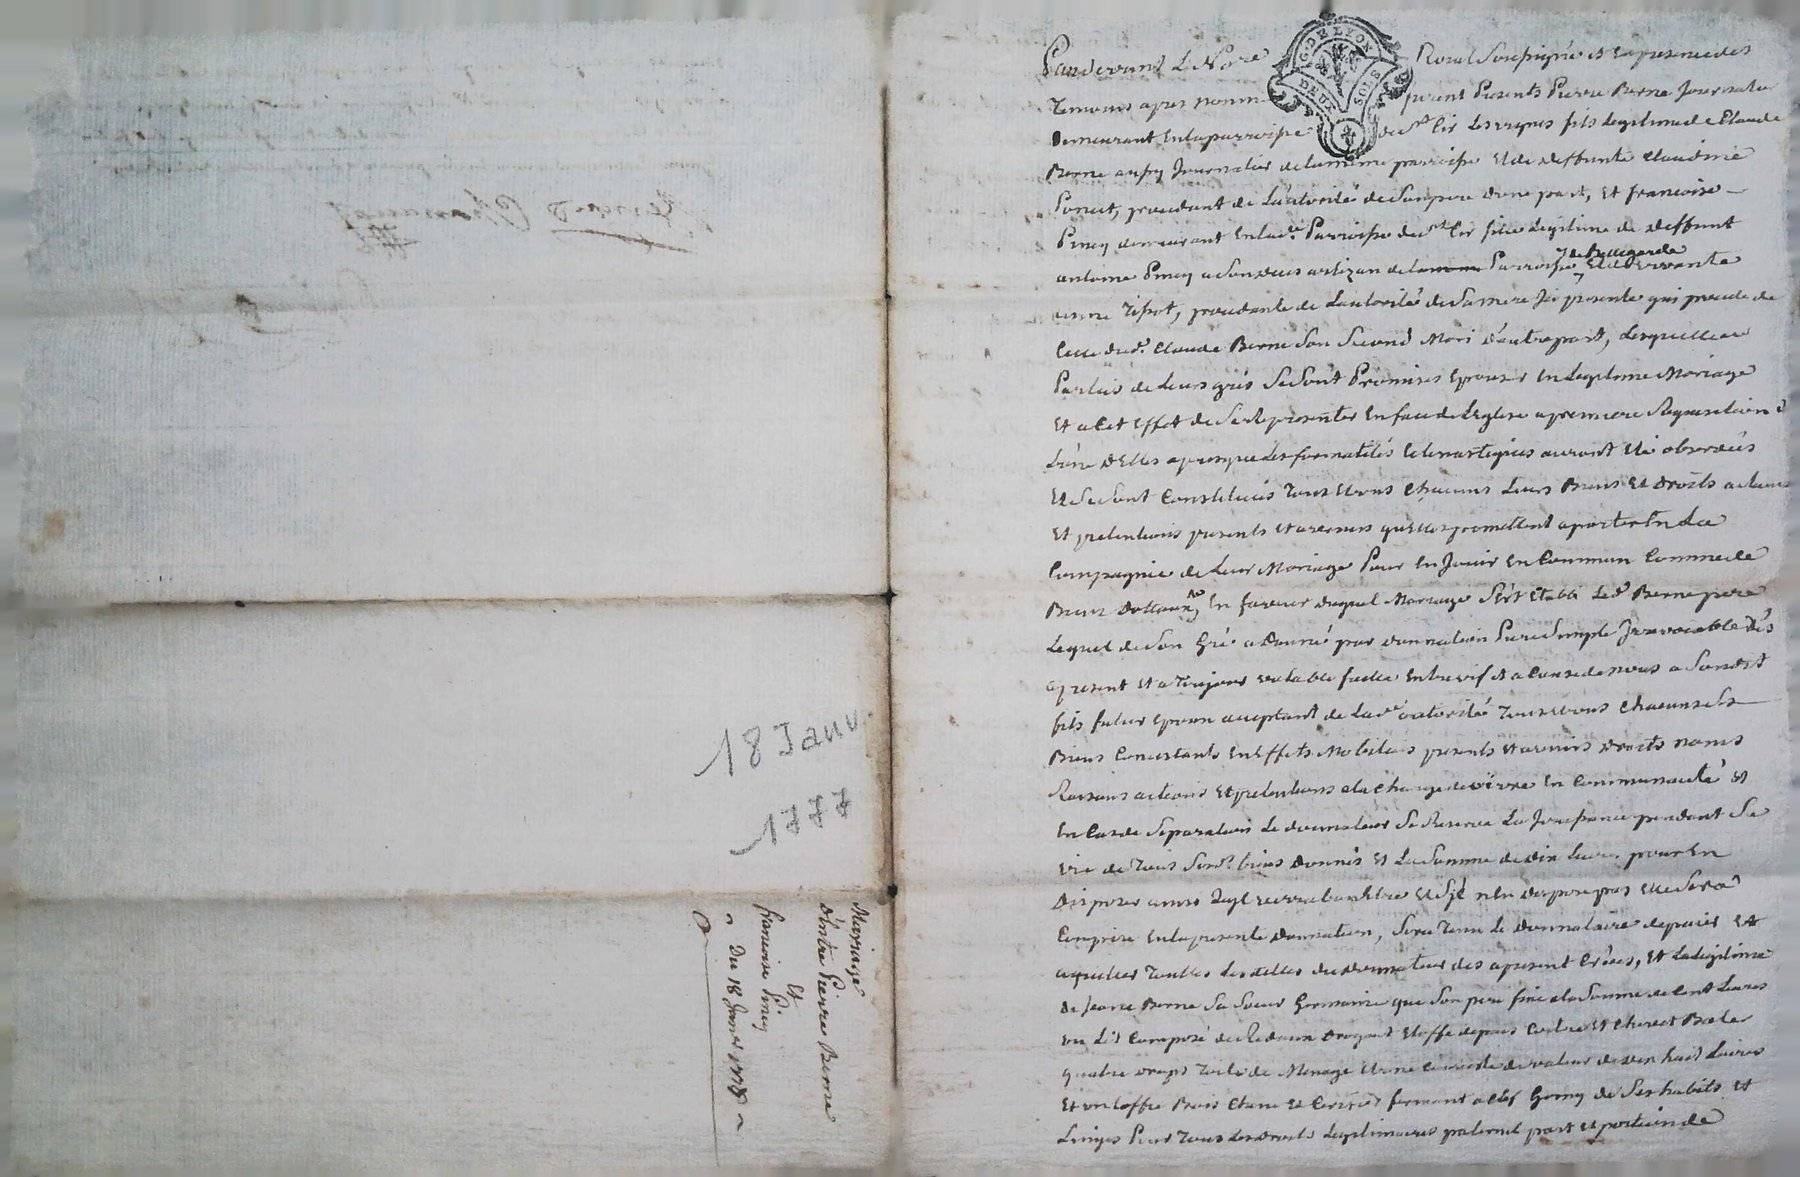 18 Janv
1777
Mariage
d'entre Pierre Berne
Et
francoise Pincy
Du 18 Janer 1777
G. DE LYON
DEUX SOLS
Pardevant Le Nore Royal Soussigné et En presence des
Temoins apres nommés furent Presents Pierre Berne Journalier
demeurant En la parroisse de St Cir Les vignes fils Legitime de Claude
Berne aussy Journalier de la meme parroisse Et de deffunte Claudine
Poncet, procedant de L'autorité de Son pere d'une part, Et francoise
Pincy demeurant En lade Parroisse de St Cir fille Legitime de deffunt
antoine Pincy a Son deces artizan de la Parroisse de Bellegarde Et de vivante
Tissot, procedante de L'autorité de Sa mere Ici presente qui procede de
Celle dudt Claude Berne Son Second Mari d'autre part, Lesquelles
Parties de Leurs grés Se Sont Promises Epouser En Legitime Mariage
Et a Cet Effet de Se Representer En face de L'Eglise a premiere Requisition de
L'une d'Elles apres que Les formalités Ecclesiastiques auront Eté observées
Et Se Sont Constitués Tous Et uns Chacuns Leurs Biens Et droits actions
Et pretentions presents Et avenirs qu'Elles promettent aporter En La
Compagnie de Leur Mariage Pour En Jouir En Commun Comme de
Biens dottaux, En faveur duquel Mariage S'est Etabli Ledt Berne pere
Lequel de Son Gré a Donné par donnation Pure Simple Irrevocable dés
apresent Et a Toujours valable faitte Entre vifs Et a Cause de noces a Sondit
fils futur Epoux acceptant de Lade autorité Tous Et uns Chacuns Ses
Biens Consistants En Effets Mobiliers presents Et avenirs droits noms
Raisons actions Et pretentions a la Charge de vivre En Communauté Et
En Cas de Separation Le donnateur Se Reserve La Jouissance pendant Sa
vie de Tous Sesdt biens donnés Et La Somme de dix Livres pour En
disposer ainsi qu'il verra bon Etre Et S'il n'En dispose pas Elle Sera
Comprise En la presente donnation, Sera Tenu Le donnataire de payer Et
aquitter Touttes Les dettes du donnateur des apresent Crées, Et La Legitime
de Jeanne Berne Sa Soeur Germaine que Son pere fixe a la Somme de Cent Livres
un Lit Composé de Rideaux Etoffe de pays Et Chevet Bale
quatre draps Toile de Menage Et une Couverte de valeur de dix huit Livres
Et un Coffre Bois Chene Et Cerisier fermant a Clef Garny de Ses habits Et
Linges Pour Tous Les droits Legitimaires paternel part Et portion de